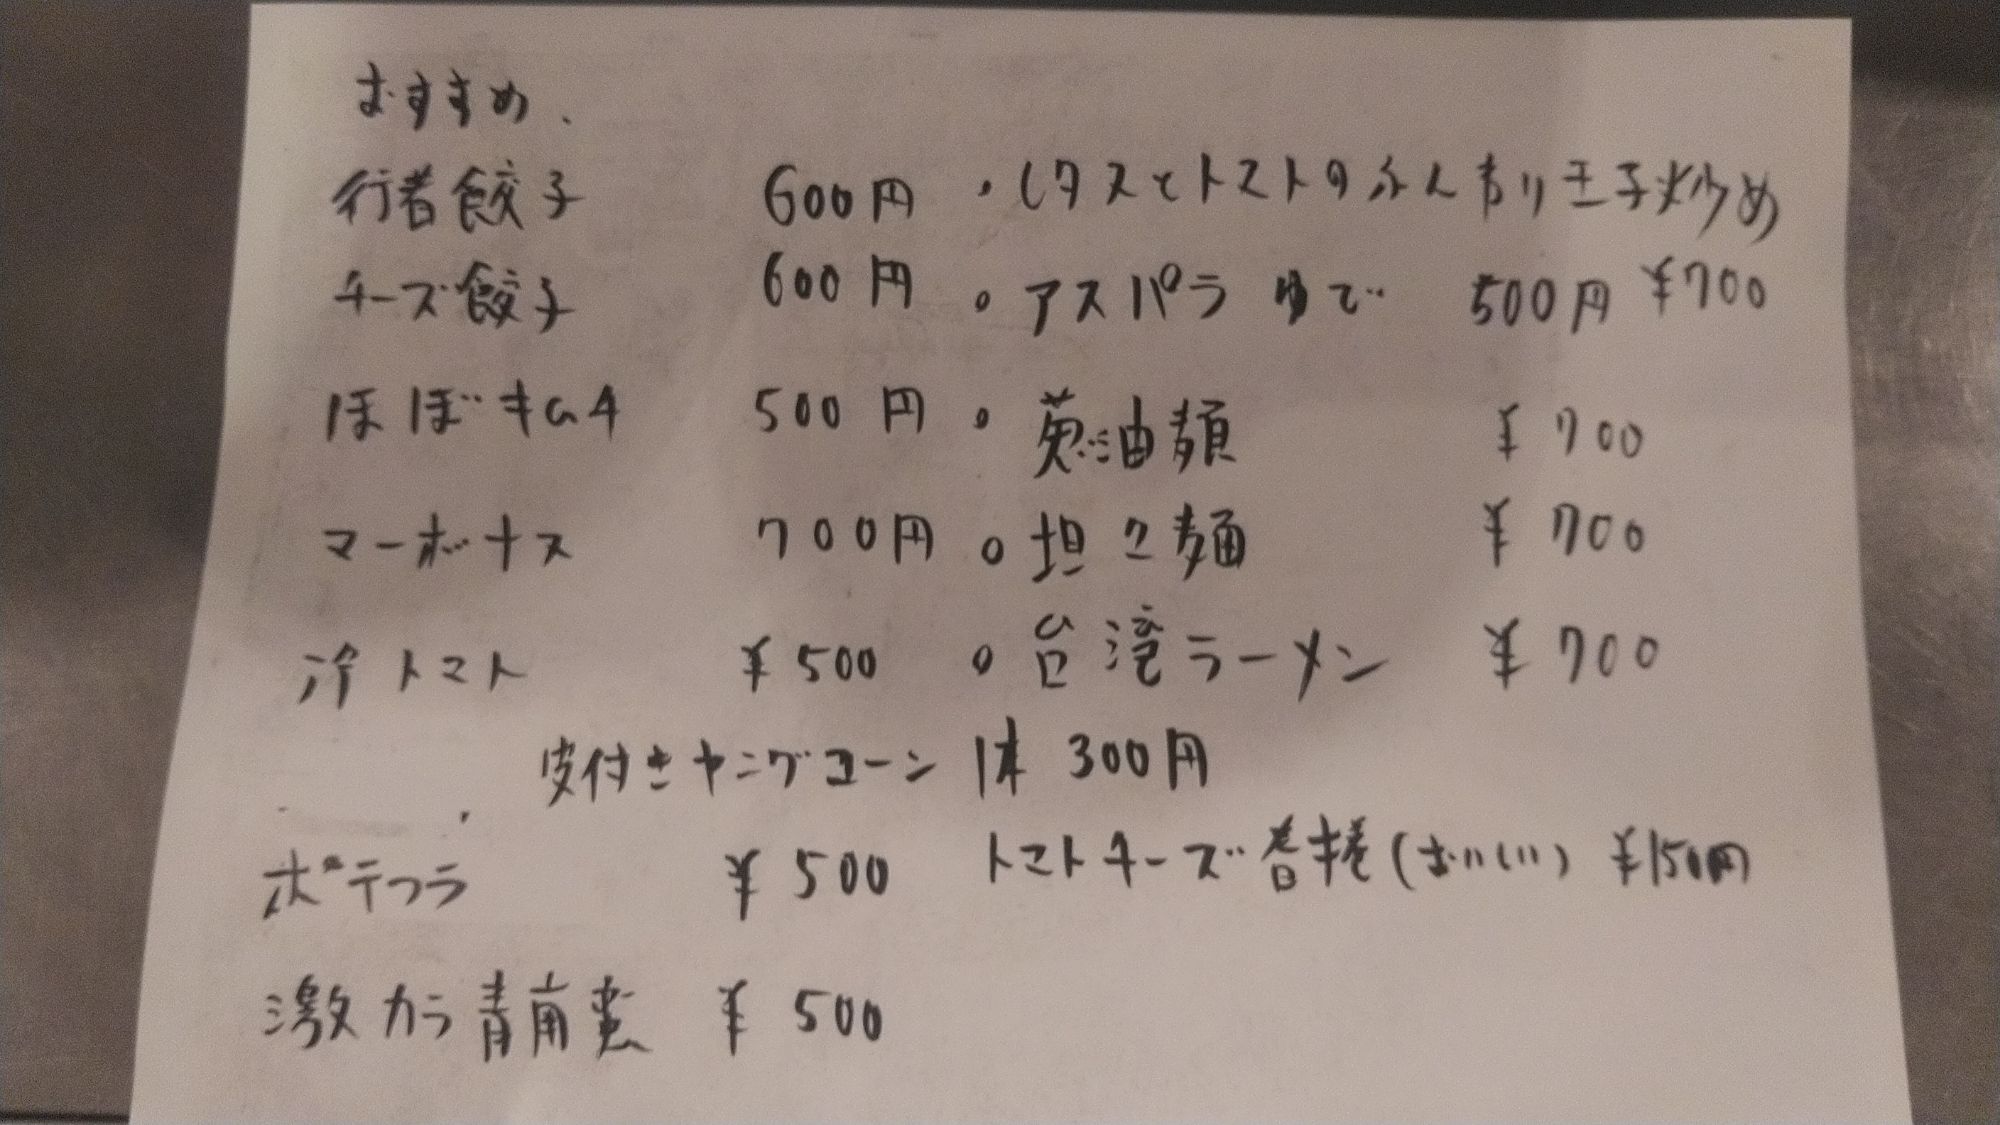 おすすめ、
行者餃子 600円
・レタスとトマトのふんわり玉子炒め ¥700
チーズ餃子 600円
。アスパラ ゆで 500円
ほぼキムチ 500円
。葱油麺 ¥700
マーボナス 700円
。坦々麺 ¥700
冷トマト ¥500
。台湾ラーメン ¥700
皮付きヤングコーン 1本 300円
ポテフラ ¥500
トマトチーズ春巻(おいしい) ¥150円
激カラ青南蛮 ¥500